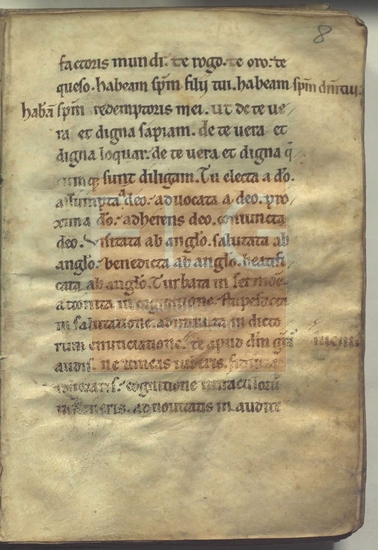 8
factoris mundi. te rogo. te oro. te
queso. habeam spm filij tui. habeam spm dni tui.
habeã spm redemptoris mei. ut de te ue
ra et digna sapiam. de te uera et
digna loquar. de te uera et digna q̄
cunq; sunt diligam. Tu electa a dõ.
assumpta a deo. aduocata a deo. pro
xima dõ. adherens deo. coniuncta
deo. Uisitata ab anglõ. salutata ab
anglõ. benedicta ab anglõ. beatifi
cata ab anglõ. Turbata in
attonita in cogitatione. stupefacta
in salutatione. admirata in dicto
rum enunciatione. te apud dm
audis. ne timeas iuberis.
cognitione miraculorũ
ad nouitatis in audite